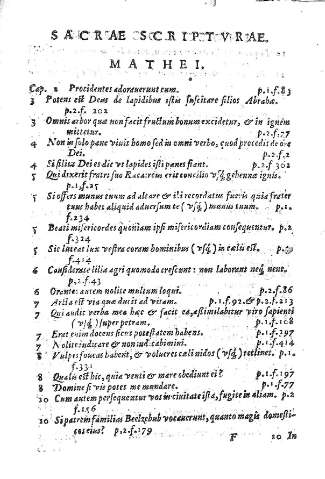 SACRAE SCRIPTVRAE.
MATHEI.
Cap. 2 Procidentes adorauerunt eum. p.1.f.83
3 Potens est Deus de lapidibus istis suscitare filios Abrahæ.
p.2.f. 202
3 Omnis arbor quæ non facit fructum bonum excidetur, & in ignem
mittetur. p.2.f.77
4 Non in solo pane viuit homo sed in omni verbo, quod procedit de ore
Dei. p.2.f.2
4 Si filius Dei es dic vt lapides isti panes fiant. p.2.f.302
5 Qui dixerit fratri suo Raca: reus erit concilio vsq gehennæ ignis.
p.1.f.25
5 Si offers munus tuum ad altare & ibi recordatus fueris quia frater
tuus habet aliquid aduersum te (vsq) munus tuum. p.1.
f.234
5 Beati misericordes quoniam ipsi misericordiam consequentur. p.2.
f.324
5 Sic luceat lux vestra coram hominibus (vsq) in cælis est.
f.414
6 Considerate lilia agri quomodo crescunt: non laborant neq nent.
p.2.f.43
6 Orantes autem nolite multum loqui. p.2.f.86
7 Arcta est via quæ ducit ad vitam. p.1.f.92.& p.2.f.213
7 Qui audit verba mea hæc & facit ea, assimilabitur viro sapienti
(vsq) super petram. p.1.f.108
7 Erat enim docens sicut potestatem habens. p.1.f.397
7 Nolite iudicare & non iudicabimini. p.1.f.414
8 Vulpes foueas habent, & volucres cæli nidos (vsq) reclinet. p.1.
f.331
8 Qualis est hic, quia venti & mare obediunt ei? p.1.f.197
8 Domine si vis potes me mundare. p.1.f.77
10 Cum autem persequentur vos in ciuitate ista, fugite in aliam. p.2
f.156
10 Si patrem familias Beelzebub vocauerunt, quanto magis domesti-
cos eius? p.2.f.79
F 10 In